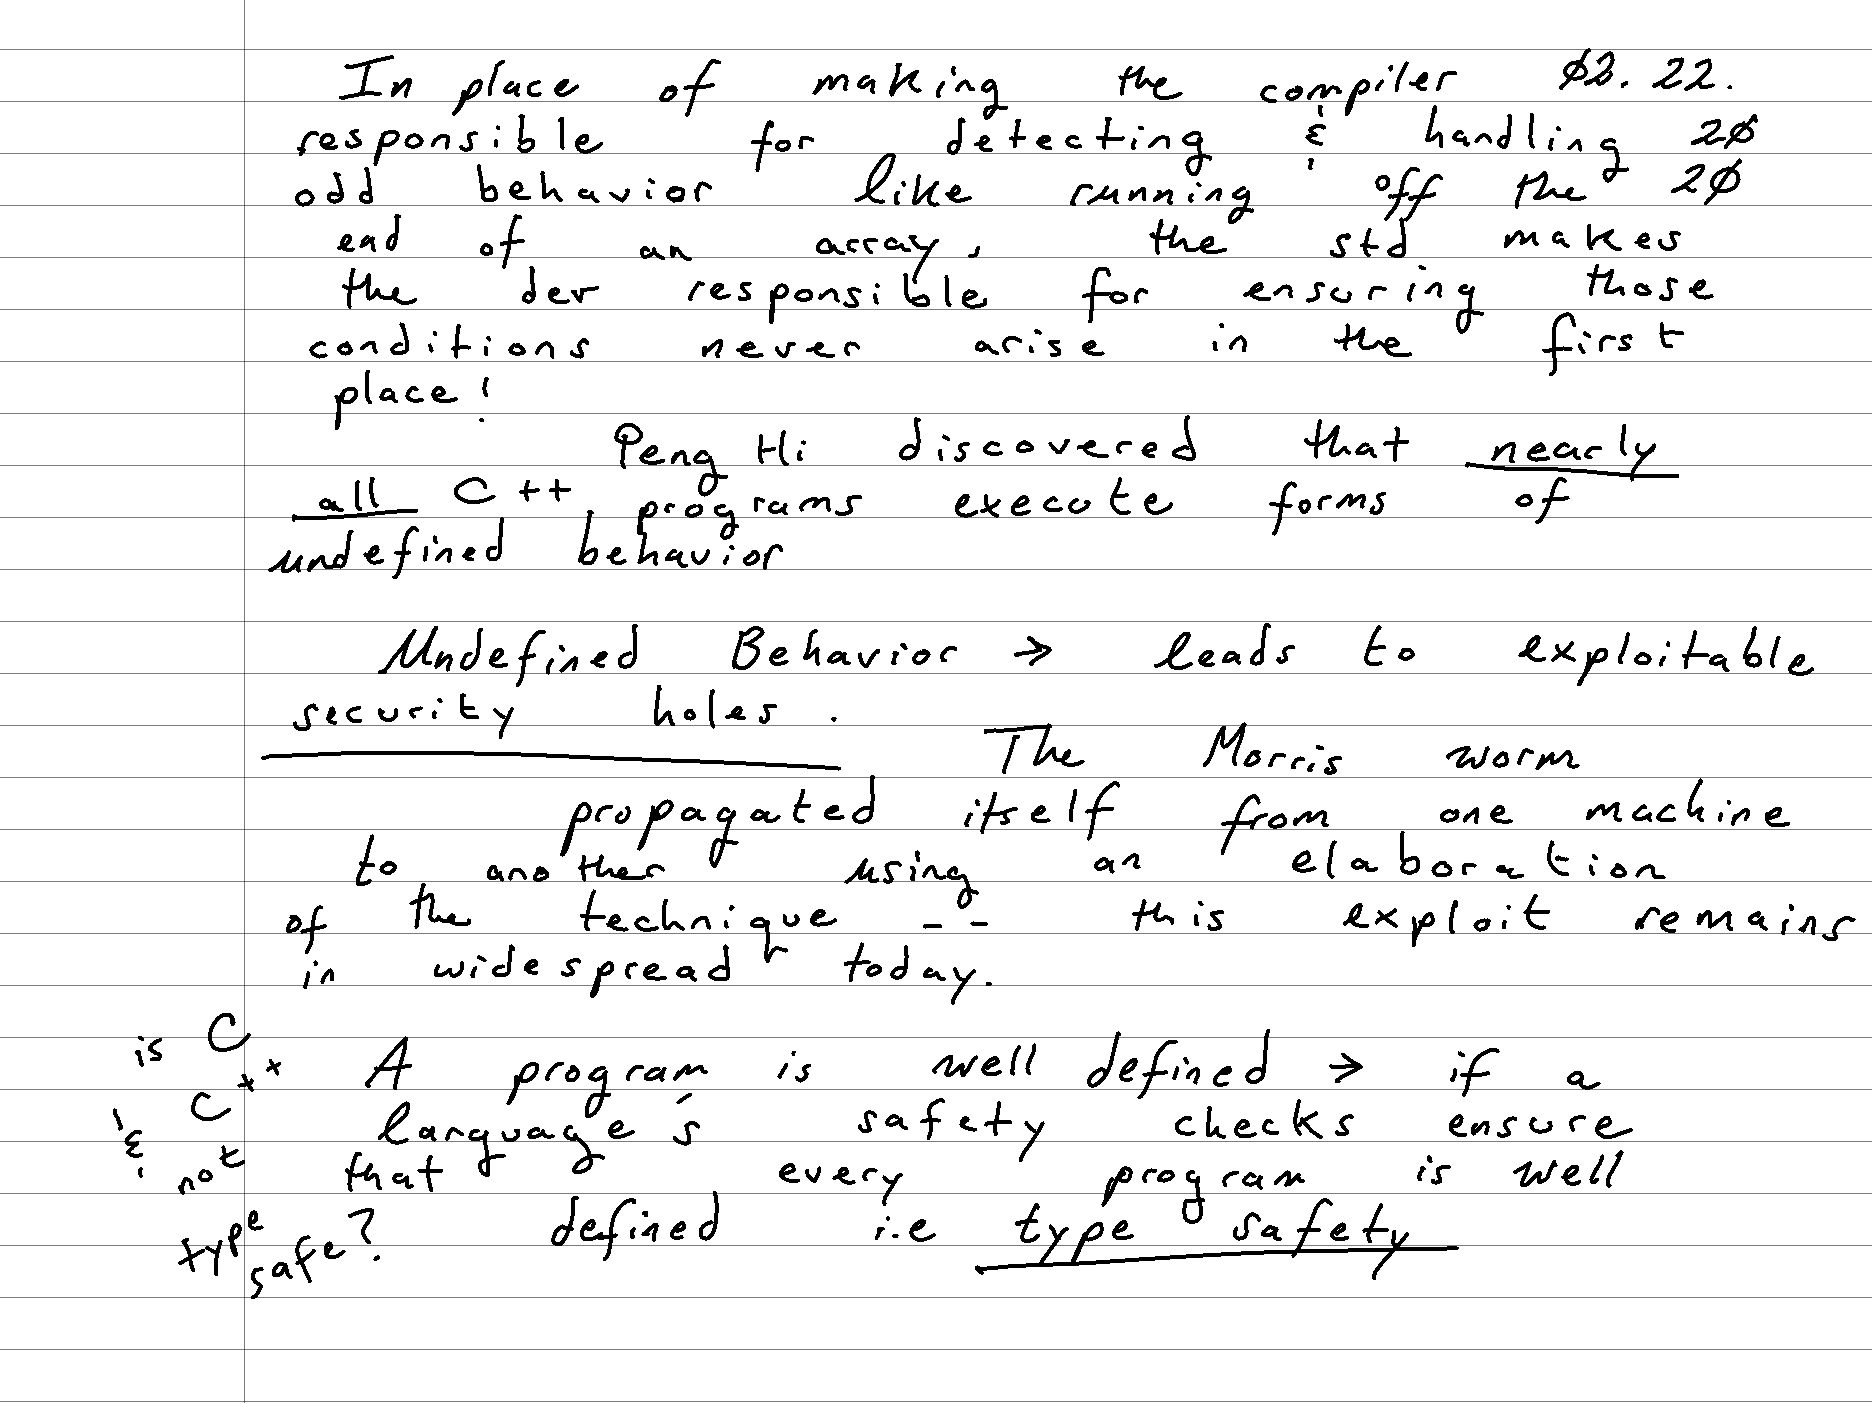 In place of making the compiler Ø2. 22.
responsible for detecting & handling 2Ø
odd behavior like running off the 2Ø
end of an array, the std makes
the dev responsible for ensuring those
conditions never arise in the first
place!
Peng Hi discovered that nearly
all C++ programs execute forms of
undefined behavior
Undefined Behavior → leads to exploitable
security holes.
The Morris worm
propagated itself from one machine
to another using an elaboration
of the technique -- this exploit remains
in widespread today.
A program is well defined → if a
language's safety checks ensure
that every program is well
defined i.e type safety
is C
C++
& not
type
safe?